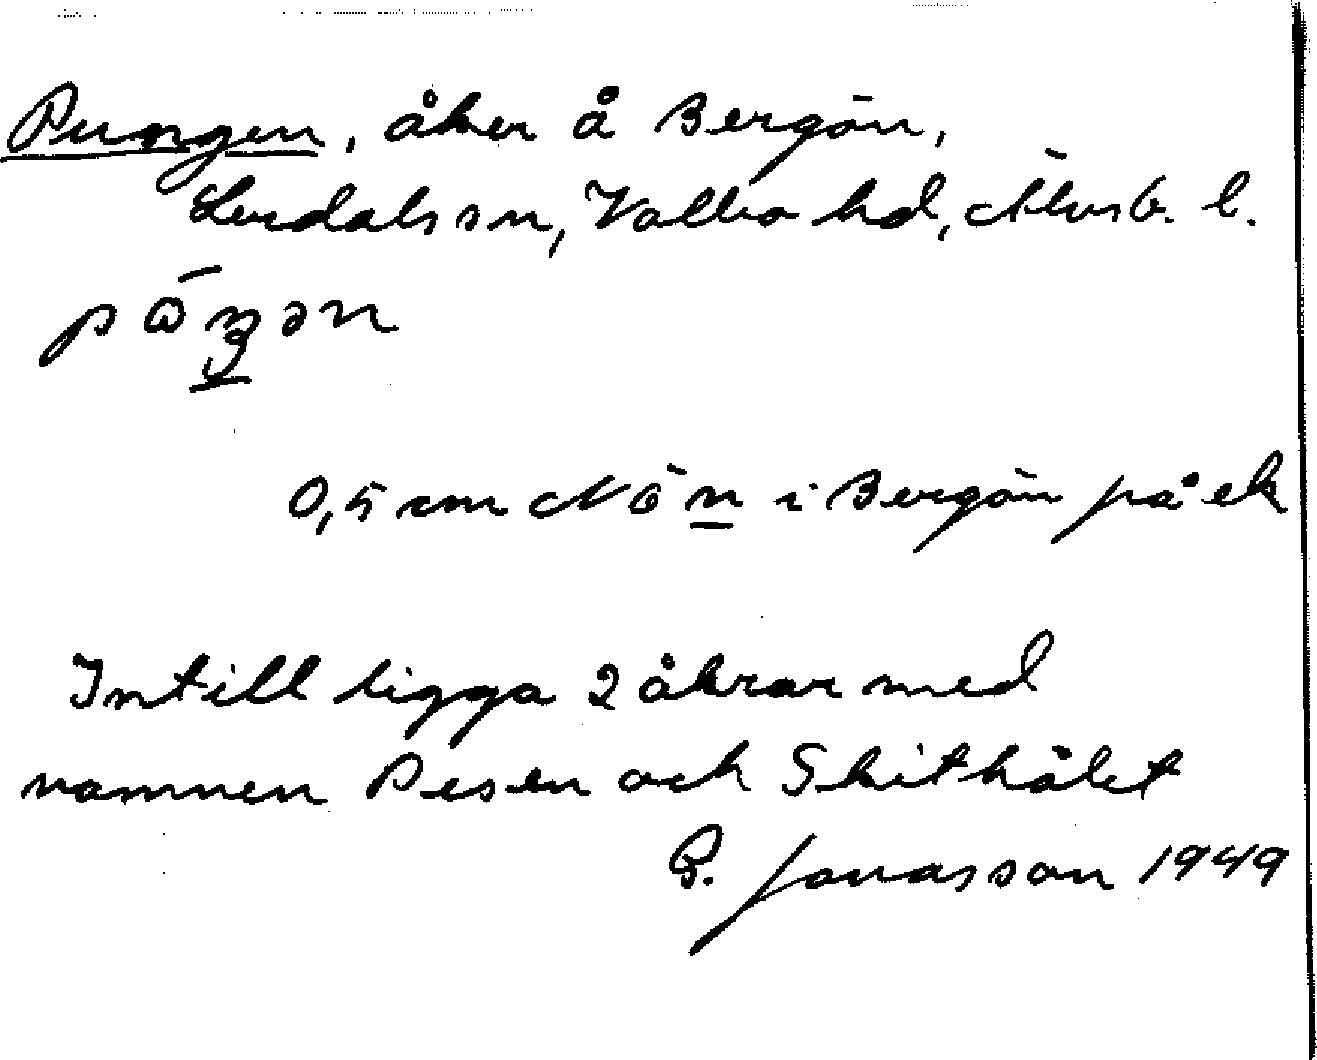 Pungen, åker å Bergön,
Lerdals sn, Valbo hd, Älvsb. l.
0,5 cm NÖn i Bergön på ek
Intill ligga 2 åkrar med
namnen Pesen och Skithålet
G. Jonasson 1949